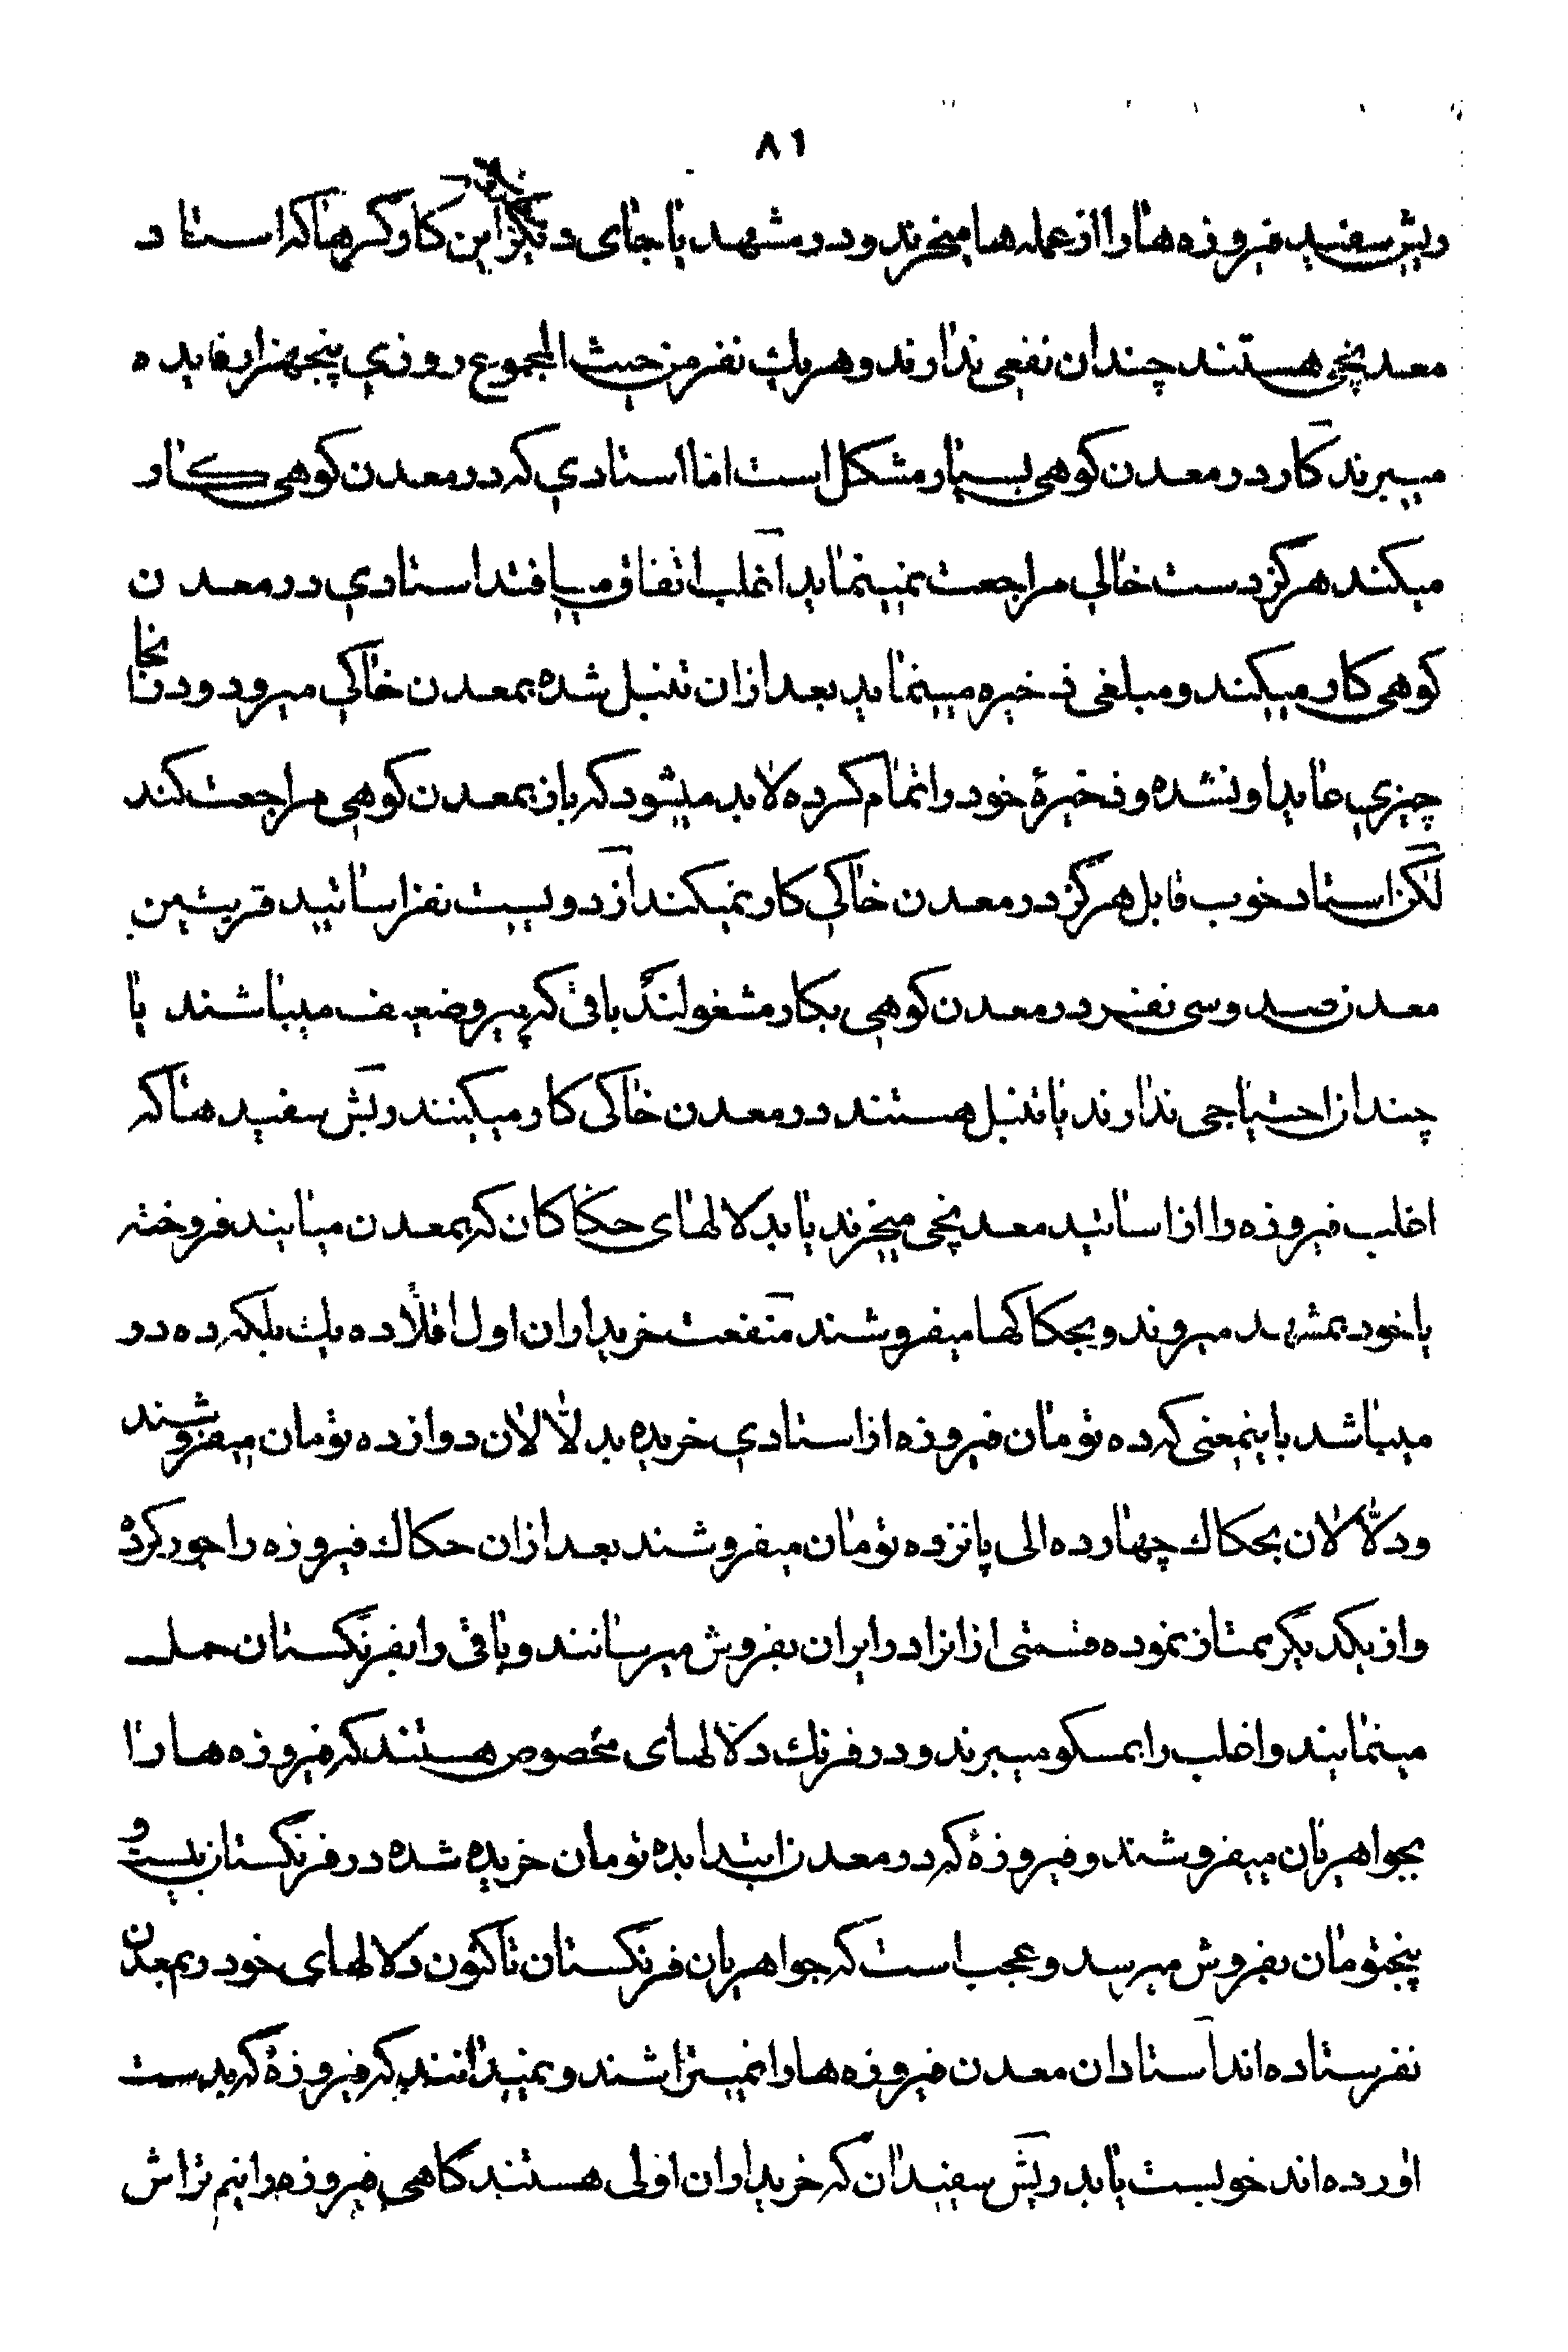 ۸۱
ریش سفید فیروزه ها را از عمله ها میخرند و در مشهد یا جای دیگر این کارگرها که استاد
معدنچی هستند چندان نفعی ندارند و هر یک نفر من حیث المجموع روزی پنجهزار فایده
میبرند کار در معدن کوهی بسیار مشکل است اما استادی که در معدن کوهی کار
میکند هرگز دست خالی مراجعت نمینماید اغلب اتفاق میافتد استادی در معدن
کوهی کار میکند و مبلغی ذخیره مینماید بعد از ان تنبل شده بمعدن خاکی میرود و در انجا
چیزی عاید او نشده و ذخیرهٔ خود را تمام کرده لابد میشود که باز بمعدن کوهی مراجعت کند
لکن استاد خوب قابل هرگز در معدن خاکی کار نمیکند از دویست نفر اساتید قریتین
معدن صد و سی نفر در معدن کوهی بکار مشغولند باقی که پیر و ضعیف میباشند یا
چندان احتیاجی ندارند یا تنبل هستند در معدن خاکی کار میکنند ریش سفید ها که
اغلب فیروزه را از اساتید معدنچی میخرند یا بدلالهای حکاکان که بمعدن میایند فروخته
یا خود بمشهد میروند و بحکاکها میفروشند منفعت خریداران اول اقلاً ده یک بلکه ده در
میباشد باینمعنی که ده تومان فیروزه از استادی خریده بدلالان دوازده تومان میفروشند
و دلالان بحکاک چهارده الی پانزده تومان میفروشند بعد از ان حکاک فیروزه را جور کرده
و از یکدیگر ممتاز نموده قسمتی از انرا در ایران بفروش میرسانند و باقی را بفرنگستان حمل
مینمایند و اغلب را بمسکو میبرند و در فرنک دلالهای مخصوص هستند که فیروزه ها را
بجواهریان میفروشند و فیروزهٔ که در معدن ابتدا بده تومان خریده شده در فرنگستان بیست و
پنجتومان بفروش میرسد و عجب است که جواهریان فرنگستان تاکنون دلالهای خود را بمعدن
نفرستاده اند استادان معدن فیروزه ها را نمیتراشند و نمیدانند که فیروزهٔ که بدست
اورده اند خوبست یا بد ریش سفیدان که خریداران اولی هستند گاهی فیروزه را نیم تراش